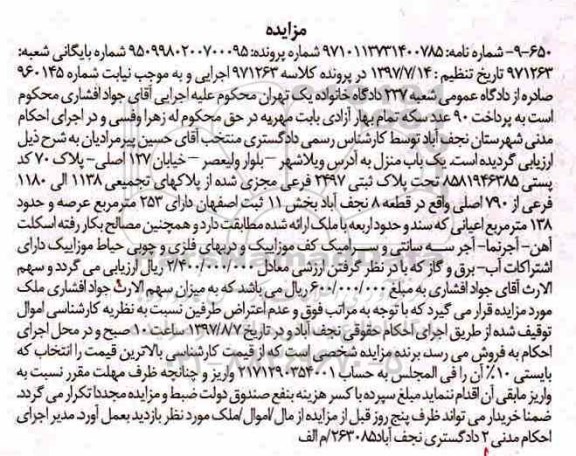 مزایده
۹-۶۵۰- شماره نامه: ۹۷۱۰۱۱۳۷۳۱۴۰۰۷۸۵ شماره پرونده: ۹۵۰۹۹۸۰۲۰۰۷۰۰۰۹۵ شماره بایگانی شعبه:
۹۷۱۲۶۳ تاریخ تنظیم : ۱۳۹۷/۷/۱۴ در پرونده کلاسه ۹۷۱۲۶۳ اجرایی و به موجب نیابت شماره ۹۶۰۱۴۵
صادره از دادگاه عمومی شعبه ۲۳۷ دادگاه خانواده یک تهران محکوم علیه اجرایی آقای جواد افشاری محکوم
است به پرداخت ۹۰ عدد سکه تمام بهار آزادی بابت مهریه در حق محکوم له زهرا وفسی و در اجرای احکام
مدنی شهرستان نجف آباد توسط کارشناس رسمی دادگستری منتخب آقای حسین پیرمرادیان به شرح ذیل
ارزیابی گردیده است. یک باب منزل به آدرس ویلاشهر – بلوار ولیعصر – خیابان ۱۳۷ اصلی- پلاک ۷۰ کد
پستی ۸۵۸۱۹۴۶۳۸۵ تحت پلاک ثبتی ۲۴۹۷ فرعی مجزی شده از پلاکهای تجمیعی ۱۱۳۸ الی ۱۱۸۰
فرعی از ۷۹۰ اصلی واقع در قطعه ۸ نجف آباد بخش ۱۱ ثبت اصفهان دارای ۲۵۳ مترمربع عرصه و حدود
۱۳۸ مترمربع اعیانی که سند و حدود اربعه با ملک ارائه شده مطابقت دارد و همچنین مصالح بکار رفته اسکلت
آهن- آجرنما- آجر سه سانتی و سرامیک کف موزاییک و دربهای فلزی و چوبی حیاط موزاییک دارای
اشتراکات آب- برق و گاز که با در نظر گرفتن ارزشی معادل ۲/۴۰۰/۰۰۰/۰۰۰ ریال ارزیابی می گردد و سهم
الارث آقای جواد افشاری به مبلغ ۶۰۰/۰۰۰/۰۰۰ ریال می باشد که به میزان سهم الارث جواد افشاری ملک
مورد مزایده قرار می گیرد که با توجه به مراتب فوق و عدم اعتراض طرفین نسبت به نظریه کارشناسی اموال
توقیف شده از طریق اجرای احکام حقوقی نجف آباد و در تاریخ ۱۳۹۷/۸/۷ ساعت ۱۰ صبح و در محل اجرای
احکام به فروش می رسد. برنده مزایده شخصی است که از قیمت کارشناسی بالاترین قیمت را انتخاب که
بایستی ۱۰٪ آن را فی المجلس به حساب ۲۱۷۱۲۹۰۳۵۴۰۰۱ واریز و چنانچه ظرف مهلت مقرر نسبت به
واریز مابقی آن اقدام ننماید مبلغ سپرده با کسر هزینه بنفع صندوق دولت ضبط و مزایده مجددا تکرار می گردد.
ضمنا خریدار می تواند ظرف پنج روز قبل از مزایده از مال/اموال/ملک مورد نظر بازدید بعمل آورد. مدیر اجرای
احکام مدنی ۲ دادگستری نجف آباد ۲۶۳۰۸۵/م الف